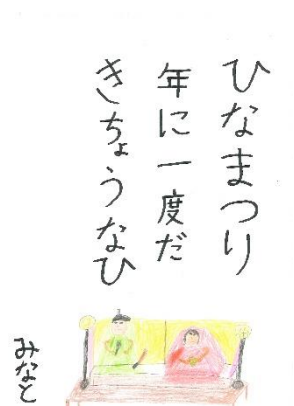 ひなまつり
年に一度だ
きちょうなひ
みなと